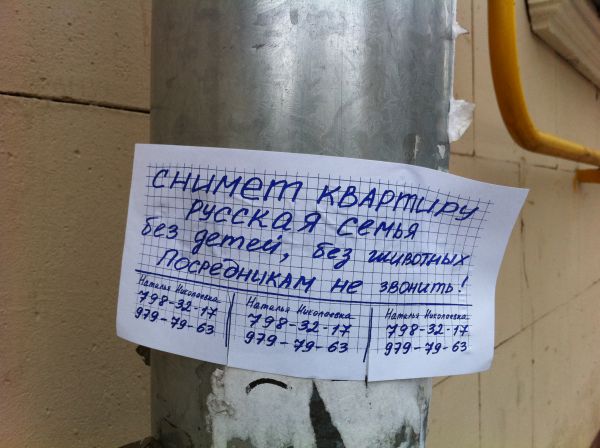 СНИМЕТ КВАРТИРУ
РУССКАЯ СЕМЬЯ
без детей, без животных
Посредникам не звонить!
Наталья Николаевна
798-32-17
979-79-63
Наталья Николаевна
798-32-17
979-79-63
Наталья Николаевна
798-32-17
979-79-63